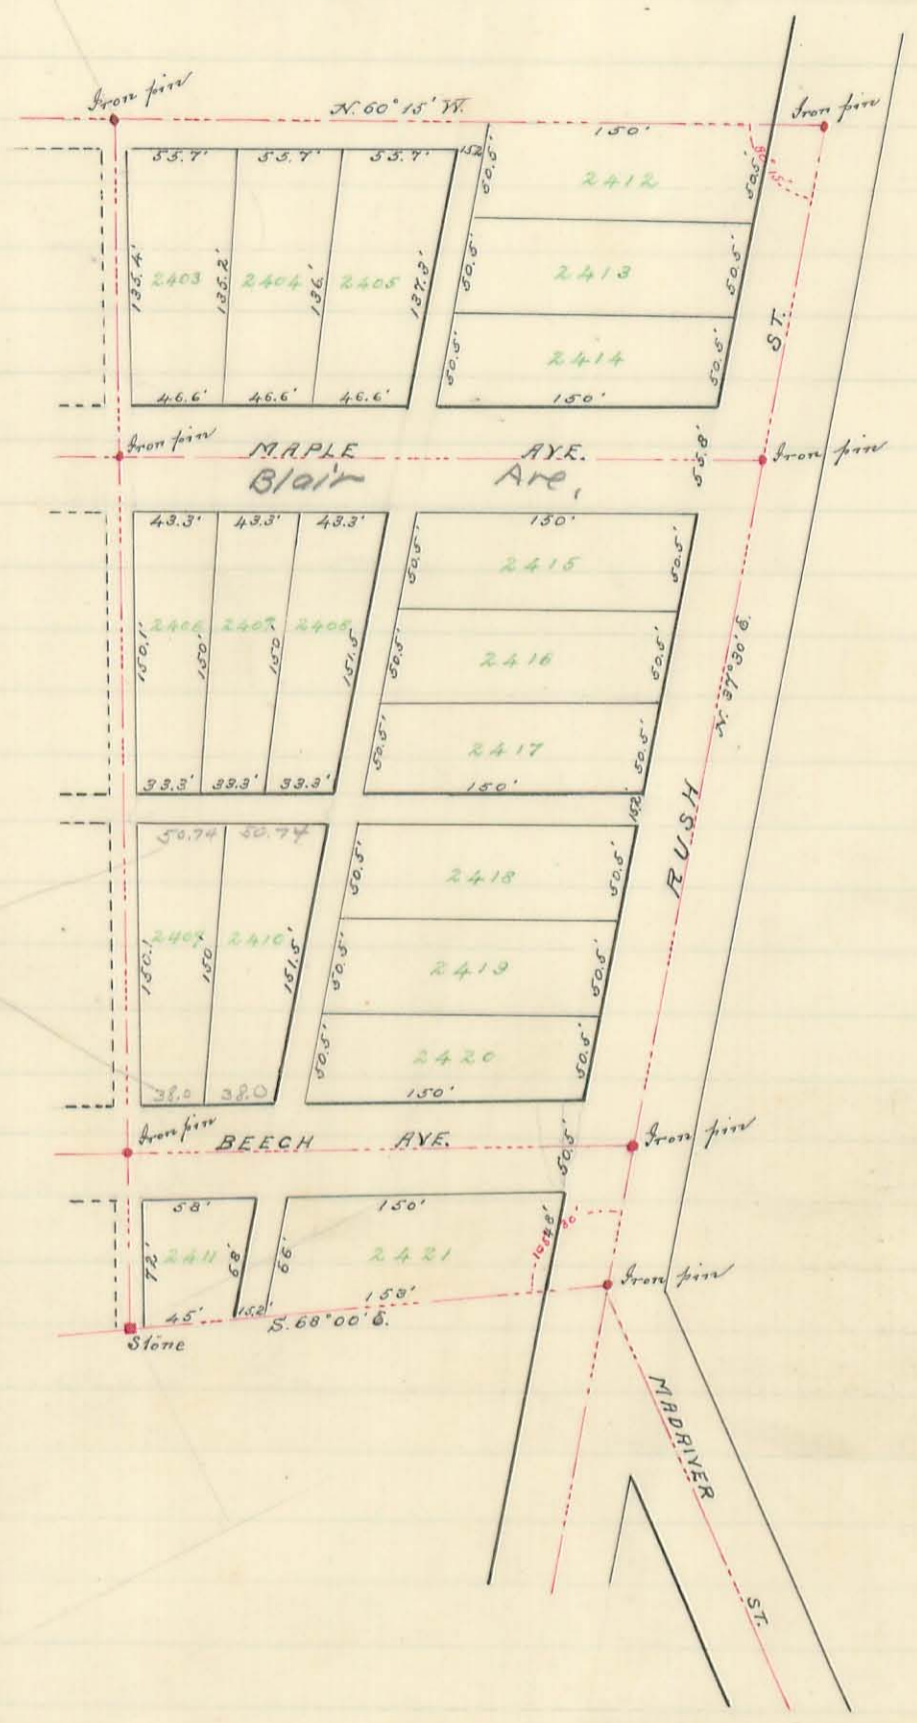 Iron pin
N. 60° 15' W.
Iron pin
150'
80° 15'
55.7' 55.7' 55.7' 152
50.5' 2412 50.5'
135.4' 2403 135.2' 2404 136' 2405 137.3'
50.5' 2413 50.5'
50.5' 2414 50.5'
46.6' 46.6' 46.6'
150'
ST.
Iron pin
MAPLE AVE.
55.8'
Iron pin
Blair Ave,
43.3' 43.3' 43.3'
150'
50.5' 2415 50.5'
150.1' 2406 150' 2407 150' 2408 151.5
50.5' 2416 50.5'
N. 37° 30' E.
50.5' 2417 50.5'
33.3' 33.3' 33.3'
150'
152'
RUSH
50.74 50.74
50.5' 2418 50.5'
150.1 2409 150 2410 151.5'
50.5' 2419 50.5'
50.5' 2420 50.5'
38.0 38.0
150'
Iron pin
BEECH AVE.
50.5'
Iron pin
58'
150'
72' 2411 68'
66' 2421 48'
30'
45' 15.2'
153'
S. 68° 00' E.
Iron pin
Stone
MADRIVER
ST.